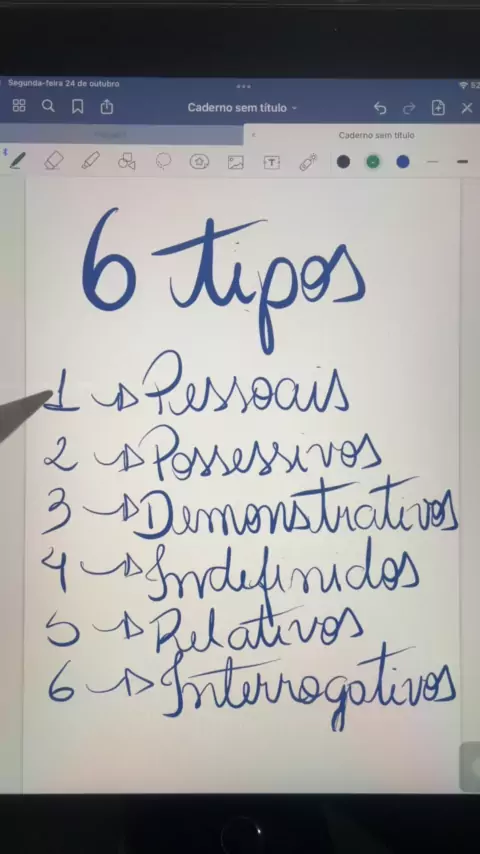 Segunda-feira 24 de outubro
Caderno sem título
Caderno sem título
6 tipos
1 → Pessoais
2 → Possessivos
3 → Demonstrativos
4 → Indefinidos
5 → Relativos
6 → Interrogativos